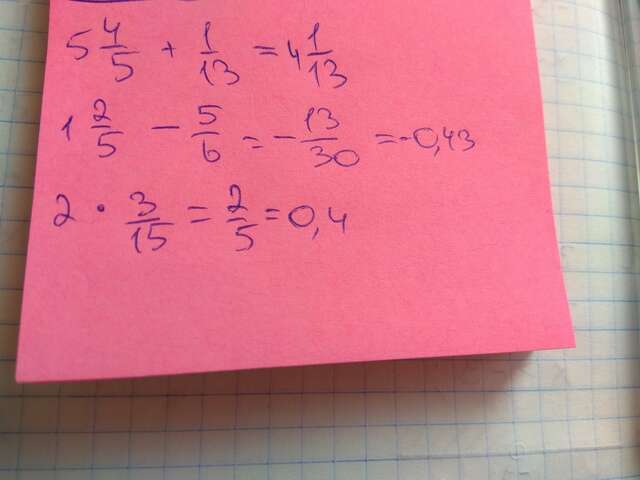 5 4/5 + 1/13 = 4 1/13
1 2/5 - 5/6 = - 13/30 = -0,43
2 · 3/15 = 2/5 = 0,4